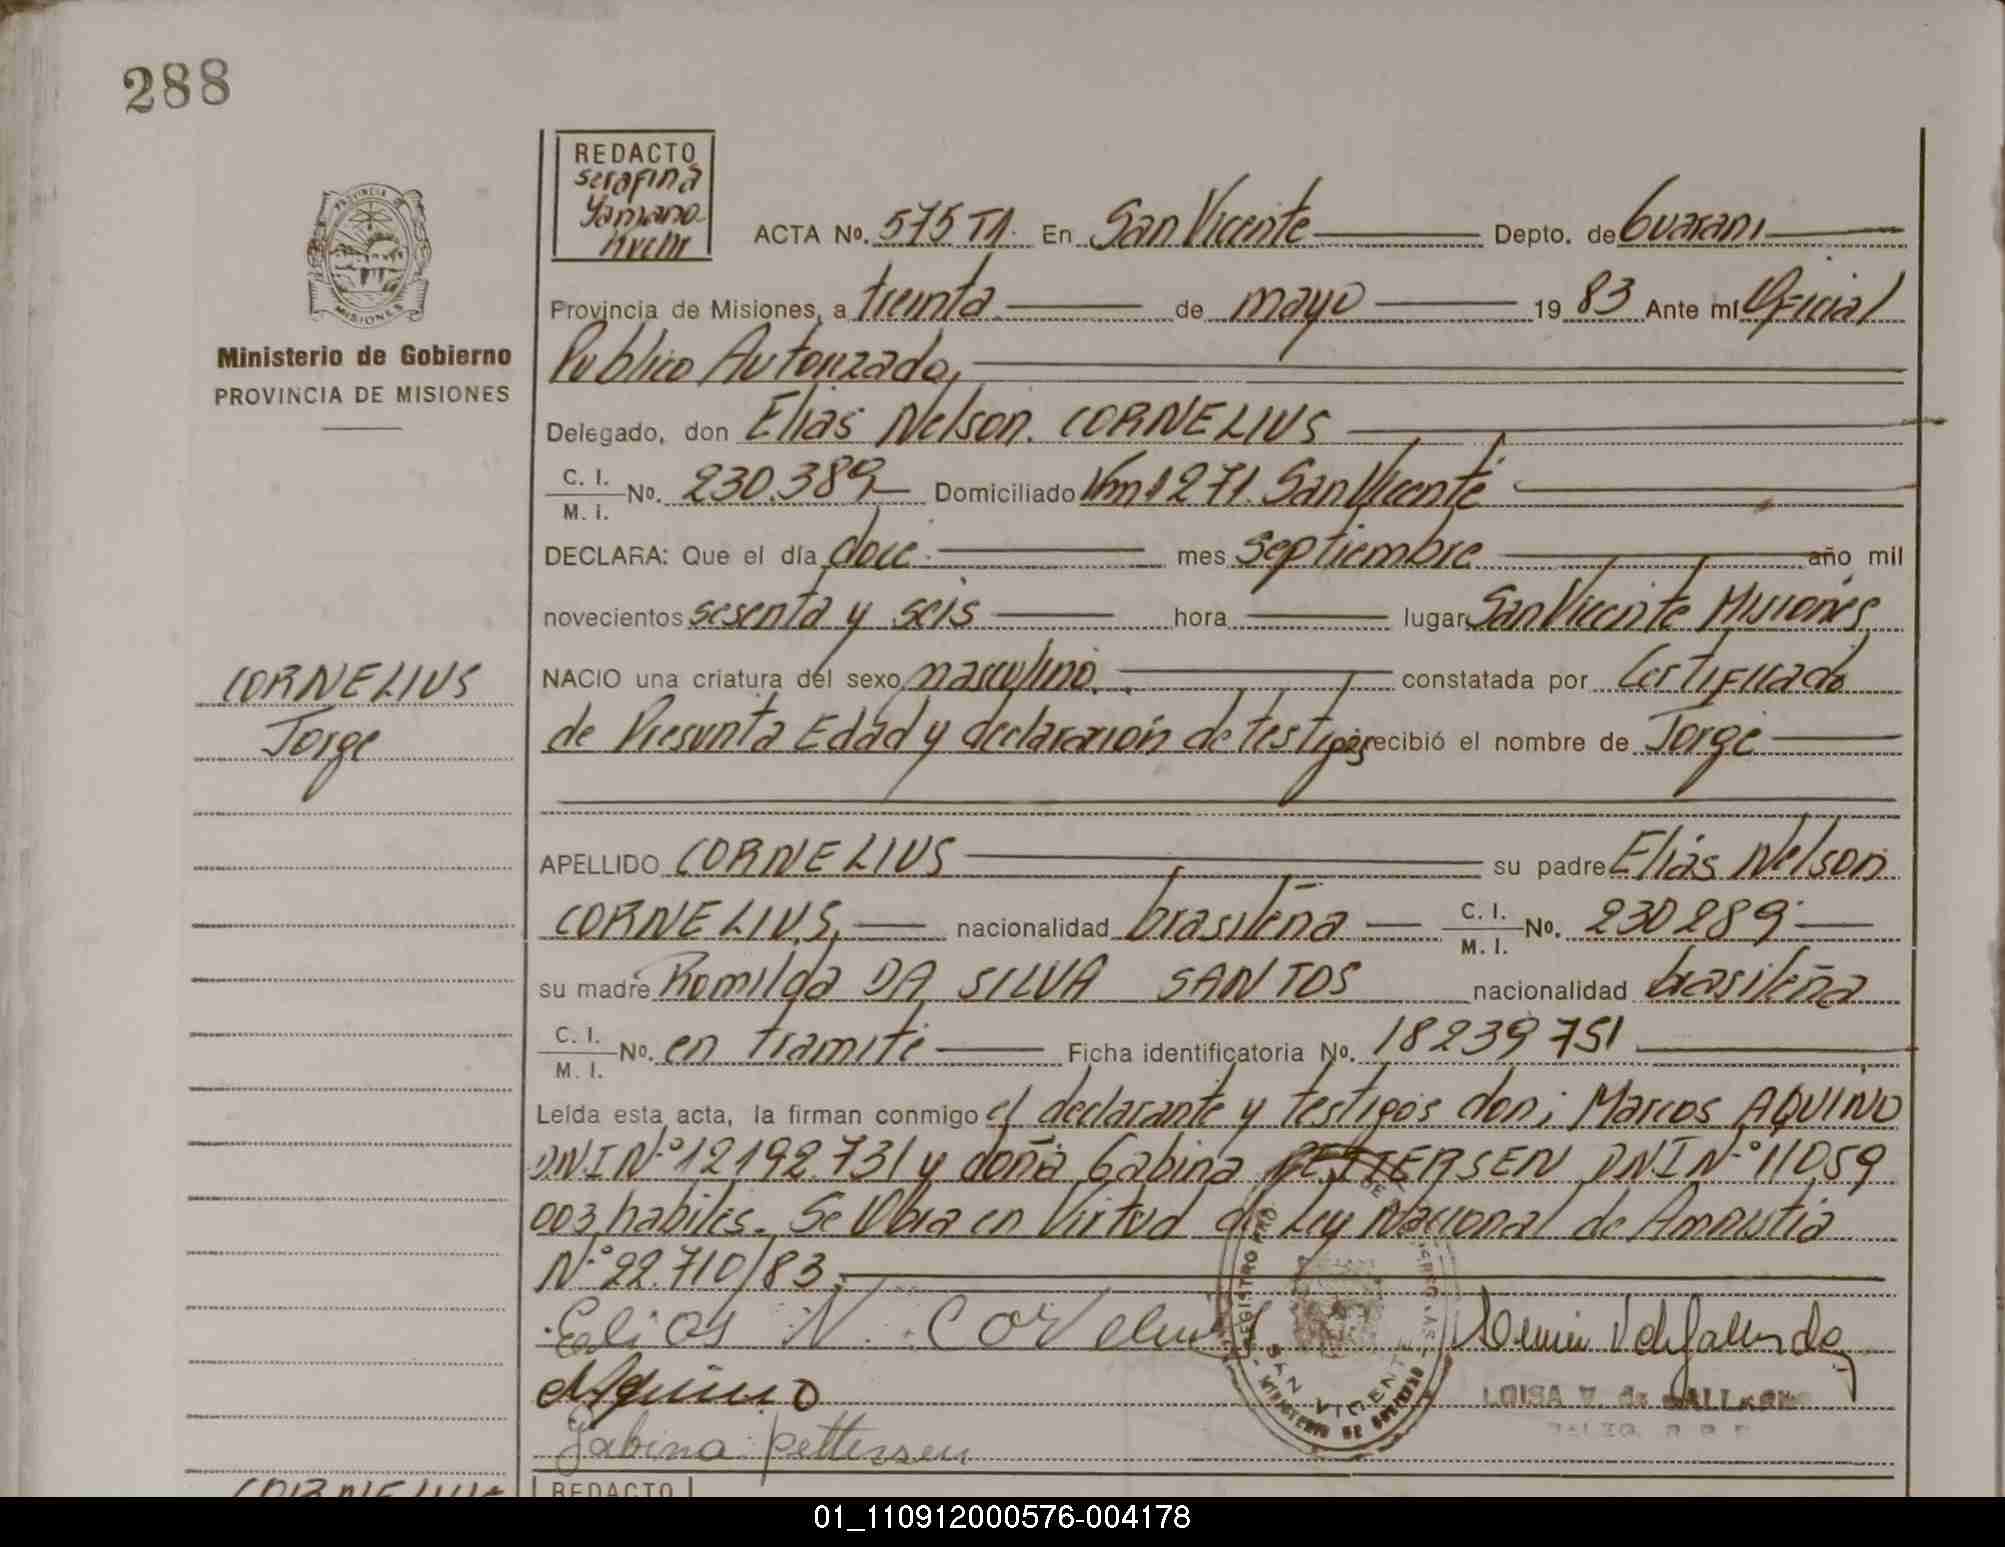 288
REDACTO
serafina
PROVINCIA
MISIONES
ACTA No. 575 TA. En San Vicente Depto. de Guarani
Provincia de Misiones, a treinta de mayo 19 83 Ante mi Oficial
Ministerio de Gobierno
PROVINCIA DE MISIONES
Publico Autorizado,
Delegado, don Elias Nelson. CORNELIUS
C. I.
M. I. No. 230.389 Domiciliado Km 1271. San Vicente
DECLARA: Que el día doce. mes septiembre año mil
novecientos sesenta y seis hora lugar San Vicente Misiones
NACIO una criatura del sexo masculino. constatada por Certificado
de Presunta Edad y declaración de testigos recibió el nombre de Jorge
CORNELIUS
Jorge
APELLIDO CORNELIUS su padre Elias Nelson
CORNELIUS, nacionalidad brasileña C. I.
M. I. No. 230289
su madre Romilda DA SILVA SANTOS nacionalidad brasileña
C. I.
M. I. No. en tramite Ficha identificatoria No. 18239751
Leída esta acta, la firman conmigo el declarante y testigos don; Marcos AQUINO
DNI Nº 12192.731 y doña Gabina PETTERSEN DNI Nº 11059
003 habiles. Se Obra en Virtud de Ley Nacional de Amnistia
Nº 22.710/83,
Elias N. Cornelius
Aquino
Gabina Pettersen
SAN VICENTE
MINISTERIO DE GOBIERNO
LUISA V. de GALLARDO
CORNELIUS
REDACTO
01_110912000576-004178